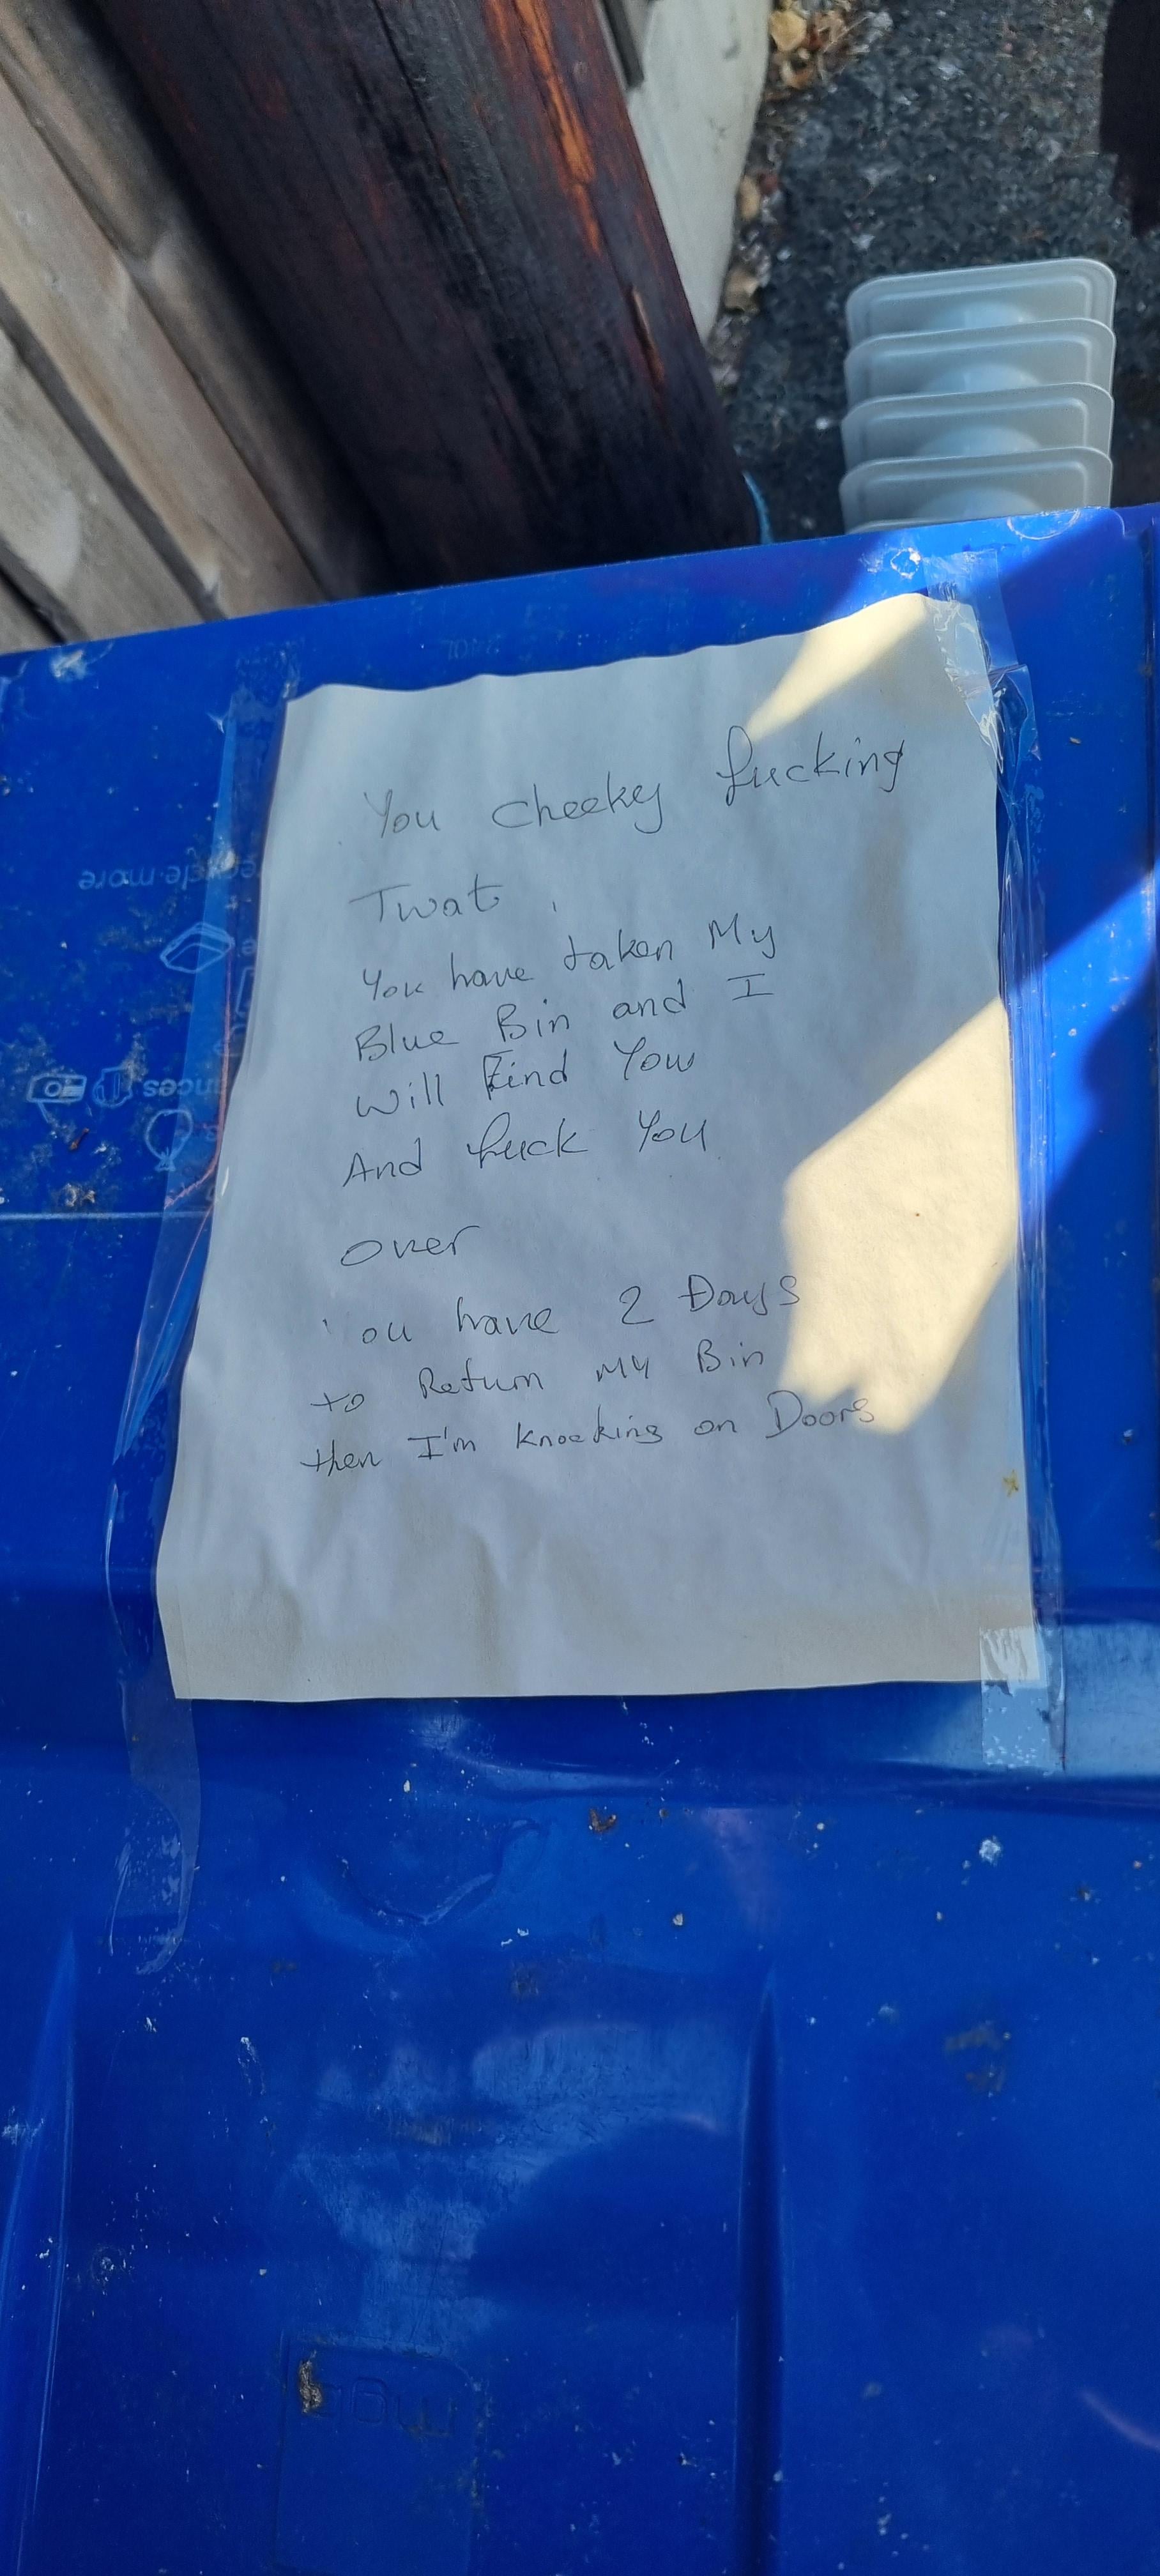 You Cheeky fucking
Twat,
You have taken My
Blue Bin and I
Will Find You
And fuck You
over
You have 2 Days
to Return MY Bin
then I'm knocking on Doors
recycle-more